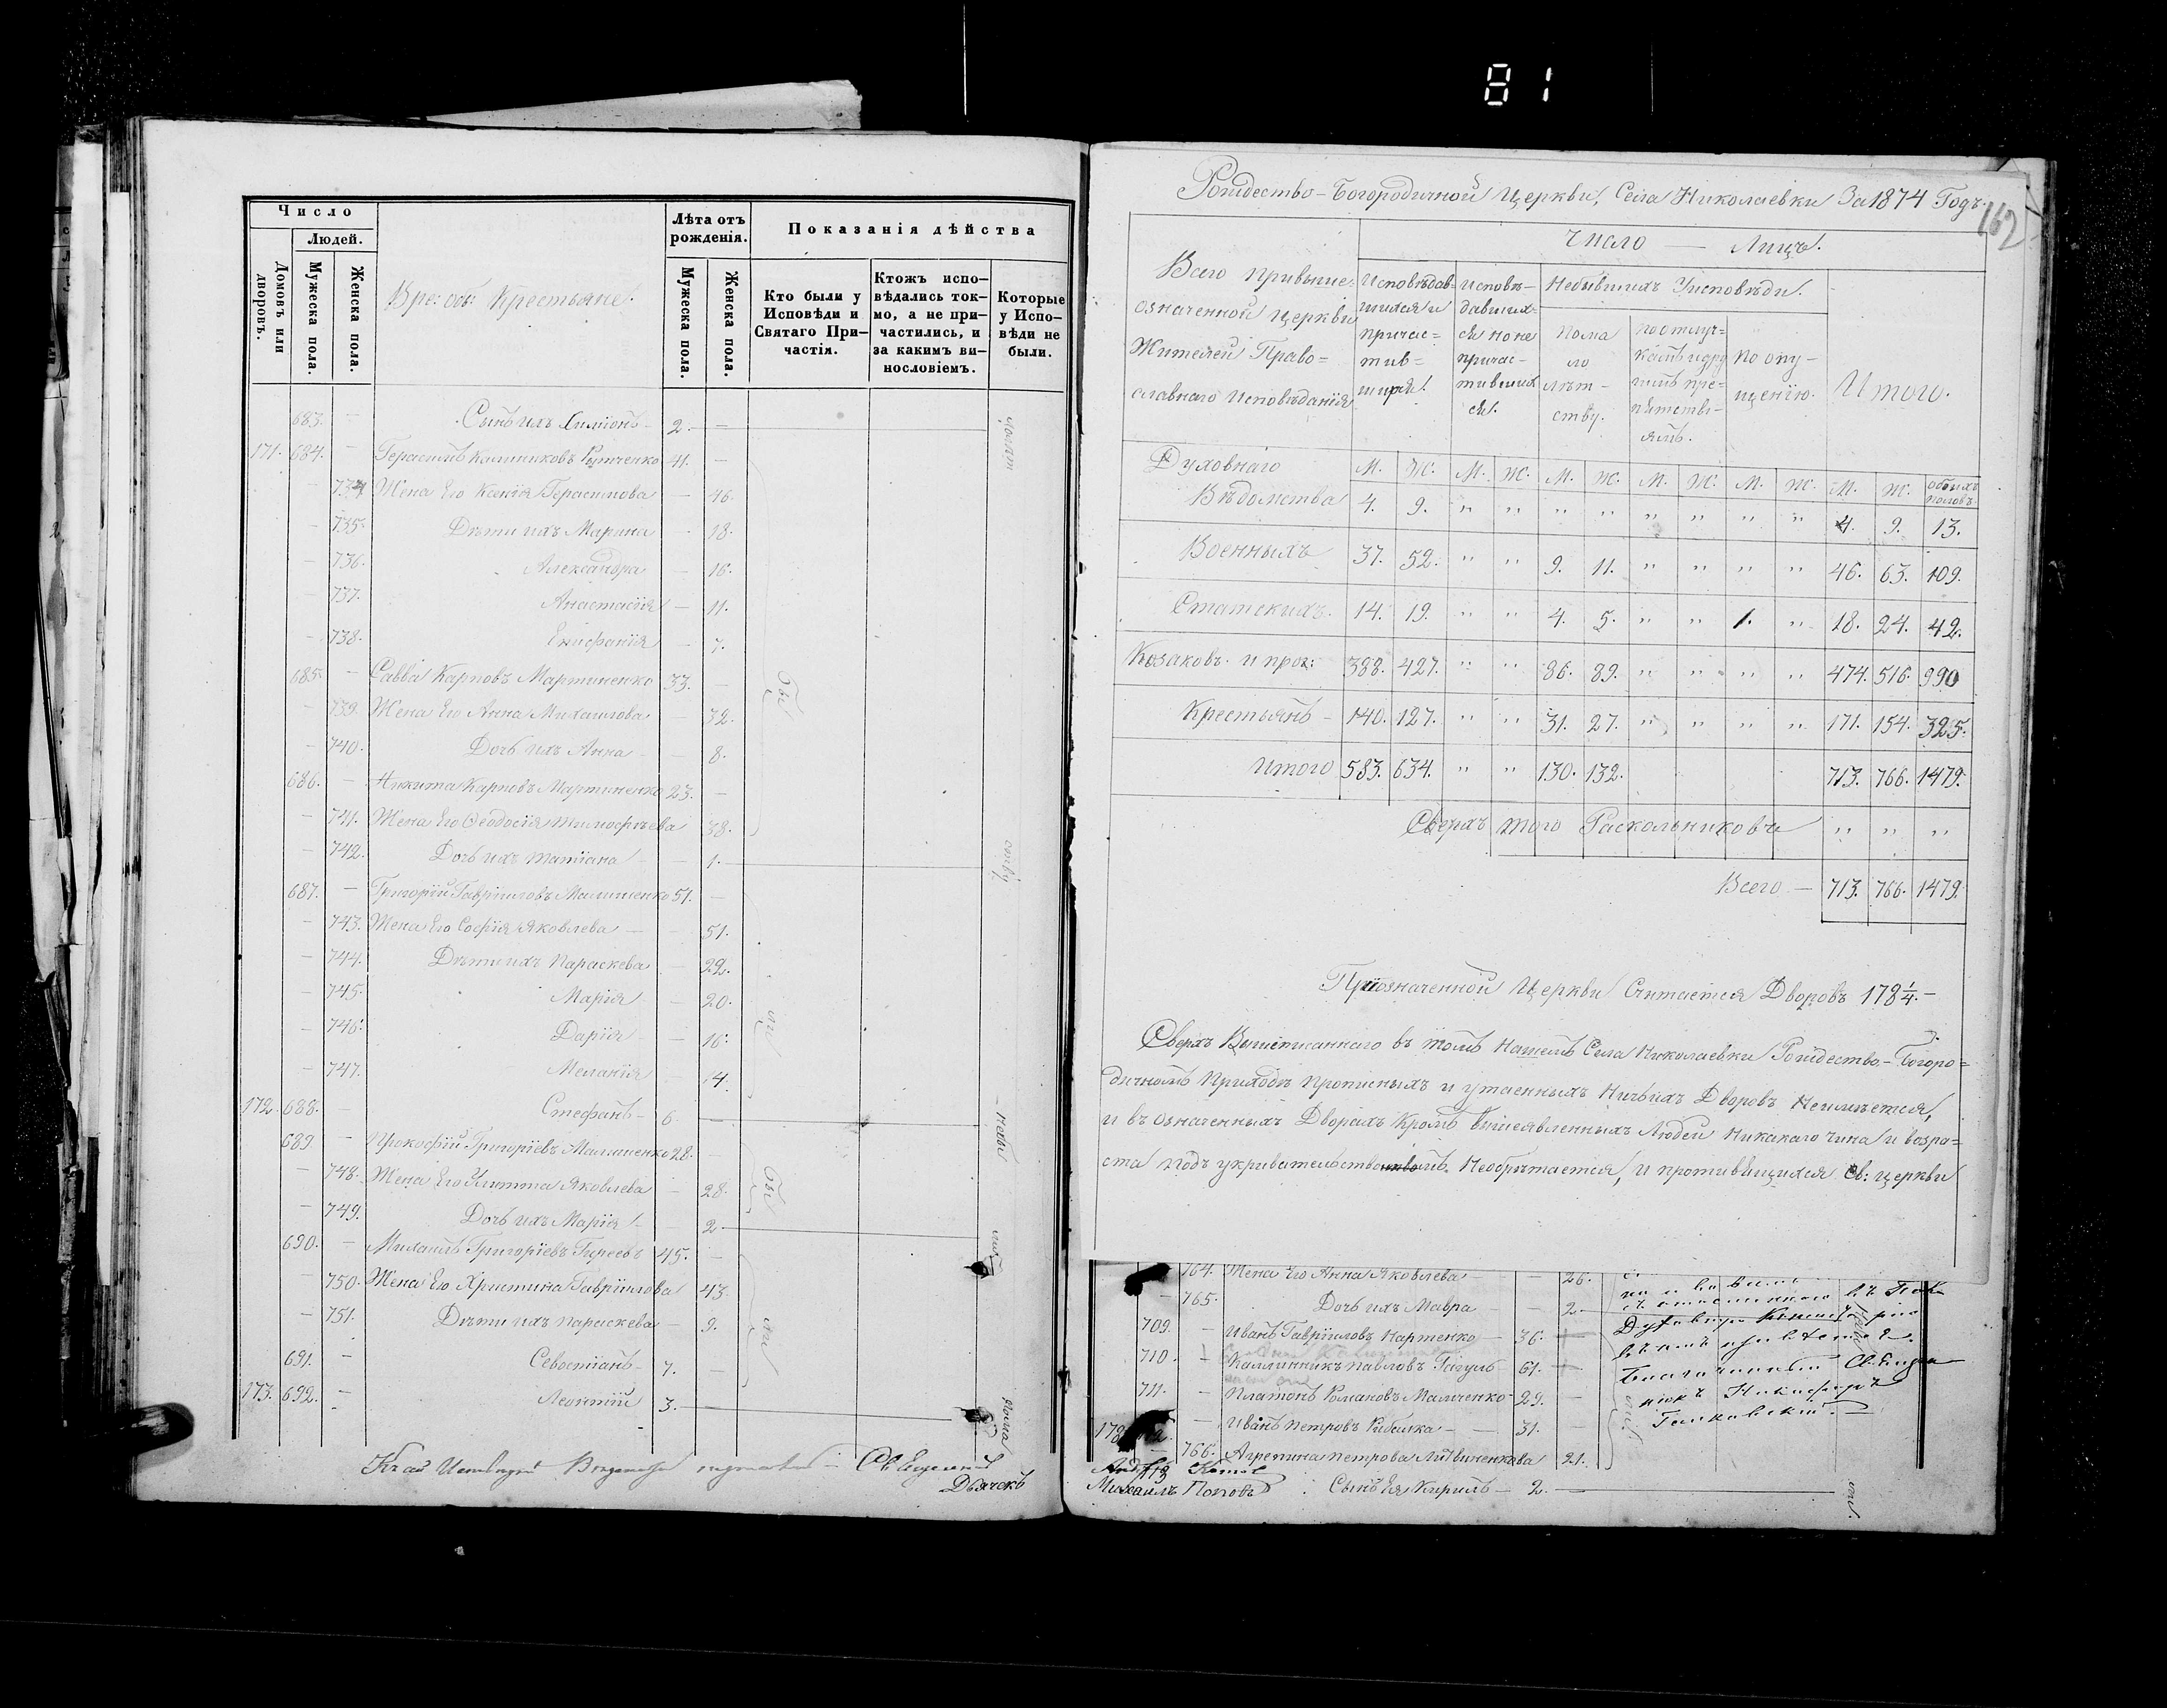 81
Число
Людей.
Домовъ или дворовъ.
Мужеска пола.
Женска пола.
Вре: об: Крестьяне.
Лѣта отъ рожденія.
Мужеска пола.
Женска пола.
Показанія дѣйства
Кто были у Исповѣди и Святаго Причастія.
Ктожъ исповѣдались токмо, а не причастились, и за какимъ винословіемъ.
Которые у Исповѣди не были.
683. - Сынъ ихъ Симіонъ - 2. -
171. 684. - Герасимъ Калиниковъ 41. -
- 734 Жена Его Ксенія Герасимова - 46.
- 735. Дѣти ихъ Марина - 18.
- 736. Александра - 16.
- 737. Анастасія - 11.
- 738. Епифанія - 7.
685. - Савва Карповъ Мартиненко 33. -
- 739. Жена Его Анна Михаилова - 32.
- 740. Дочь ихъ Анна - - 8.
686. - Никита Карповъ Мартиненко 23. -
- 741. Жена Его Ѳеодосія Тимофѣева 38.
- 742. Дочь ихъ Татіана - - 1.
687. - Григорій Гавріиловъ Малишенко 51. -
- 743. Жена Его Софія Яковлева - 51.
- 744. Дѣти ихъ Параскева - 22.
- 745. Марія - 20.
- 746. Дарія - 16.
- 747. Меланія - 14.
172. 688. - Стефанъ - 6. -
689 - Прокофій Григоріевъ Малишенко 28. -
- 748. Жена Его Улитта Яковлева - 28.
- 749. Дочь ихъ Марія - - 2
690. - Михаилъ Григоріевъ 45. -
- 750. Жена Его Христина Гавріилова 43.
- 751. Дѣти ихъ Параскева - 9.
691. - Севостіанъ - 7. -
173. 692. - Леонтій 3. -
Къ сей Исповѣдной
Дьячекъ
Рождество-Богородичной Церкви, Села Николаевки За 1874 Годъ.
162
Число - Лицъ.
Всего при вышеозначенной церкви Жителей Православнаго Исповѣданія
Исповѣдавшихся и причастившихся.
Исповѣдавшихся но не причастившихся.
Небывшихъ Уисповѣди.
по малолѣтству.
по отлучкамъ и другимъ препятствіямъ.
по опущенію.
Итого.
М. Ж. М. Ж. М. Ж. М. Ж. М. Ж. М. Ж. обоихъ половъ
Духовнаго Вѣдомства 4. 9. " " " " " " " " 4. 9. 13.
Военныхъ 37. 52. " " 9. 11. " " " " 46. 63. 109.
Статскихъ. 14. 19. " " 4. 5. " " 1. " 18. 24. 42.
Козаковъ и проч: 388. 427. " " 86. 89. " " " " 474. 516. 990
Крестьянъ - 140. 127. " " 31. 27. " " " " 171. 154. 325.
Итого 583. 634. " " 130. 132. 713. 766. 1479.
Сверхъ того Раскольниковъ " " "
Всего - 713. 766. 1479.
При означенной Церкви Считается Дворовъ 178 1/4. -
Сверхъ Вышеписаннаго въ томъ Нашемъ Села Николаевки Рождество-Богоро=
дичномъ Приходѣ прописныхъ и утаенныхъ Ничьихъ Дворовъ Неимѣется,
и въ означенныхъ Дворахъ Кромѣ вышеявленныхъ Людей Никакаго чина и возра=
ста подъ укривательствомъ Необрѣтается, и противящихся св: церкви
764. Жена Его Анна Яковлева - - 26.
- 765. Дочь ихъ Мавра - - 2
709. - Иванъ Гавріиловъ Мартенко - 36.
710. - Каллинникъ Павловъ 61.
711. - Платонъ Романовъ Малченко - 29. -
- Иванъ Петровъ Рибалка - 31. -
- 766. Агрепина Петрова Литвиненкова 21.
713
Михаилъ Поповъ
Сынъ Ея Кирилъ - 2.
Благочинный